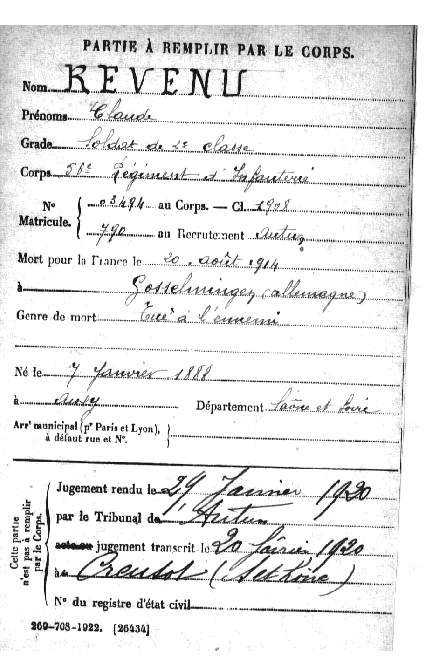 PARTIE À REMPLIR PAR LE CORPS.
Nom REVENU
Prénoms Claude
Grade Soldat de 2e classe
Corps Régiment d'Infanterie
N° Matricule. { 03494 au Corps. — Cl. 1908
790 au Recrutement Autun
Mort pour la France le 20 août 1914
à Gosselmingen (allemagne)
Genre de mort Tué à l'ennemi
Né le 7 Janvier 1888
à Département Saône et Loire
Arrt municipal (pr Paris et Lyon), à défaut rue et N°.
Cette partie n'est pas à remplir par le Corps.
Jugement rendu le 29 Janvier 1920
par le Tribunal d'Autun
acte ou jugement transcrit le 20 février 1920
à Creusot (S et Loire)
N° du registre d'état civil
269-708-1922. [26434]